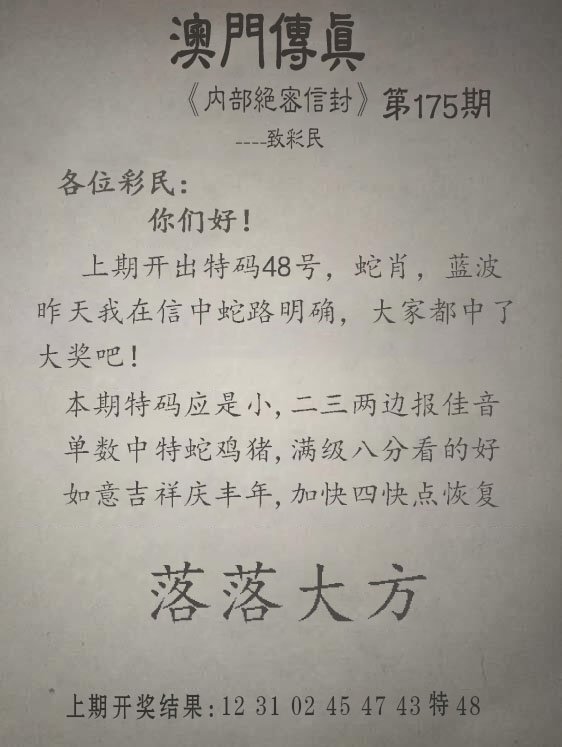 澳門傳真
《内部絕密信封》第175期
----致彩民
各位彩民：
你们好！
上期开出特码48号，蛇肖，蓝波
昨天我在信中蛇路明确，大家都中了
大奖吧！
本期特码应是小,二三两边报佳音
单数中特蛇鸡猪,满级八分看的好
如意吉祥庆丰年,加快四快点恢复
落落大方
上期开奖结果:12 31 02 45 47 43 特 48